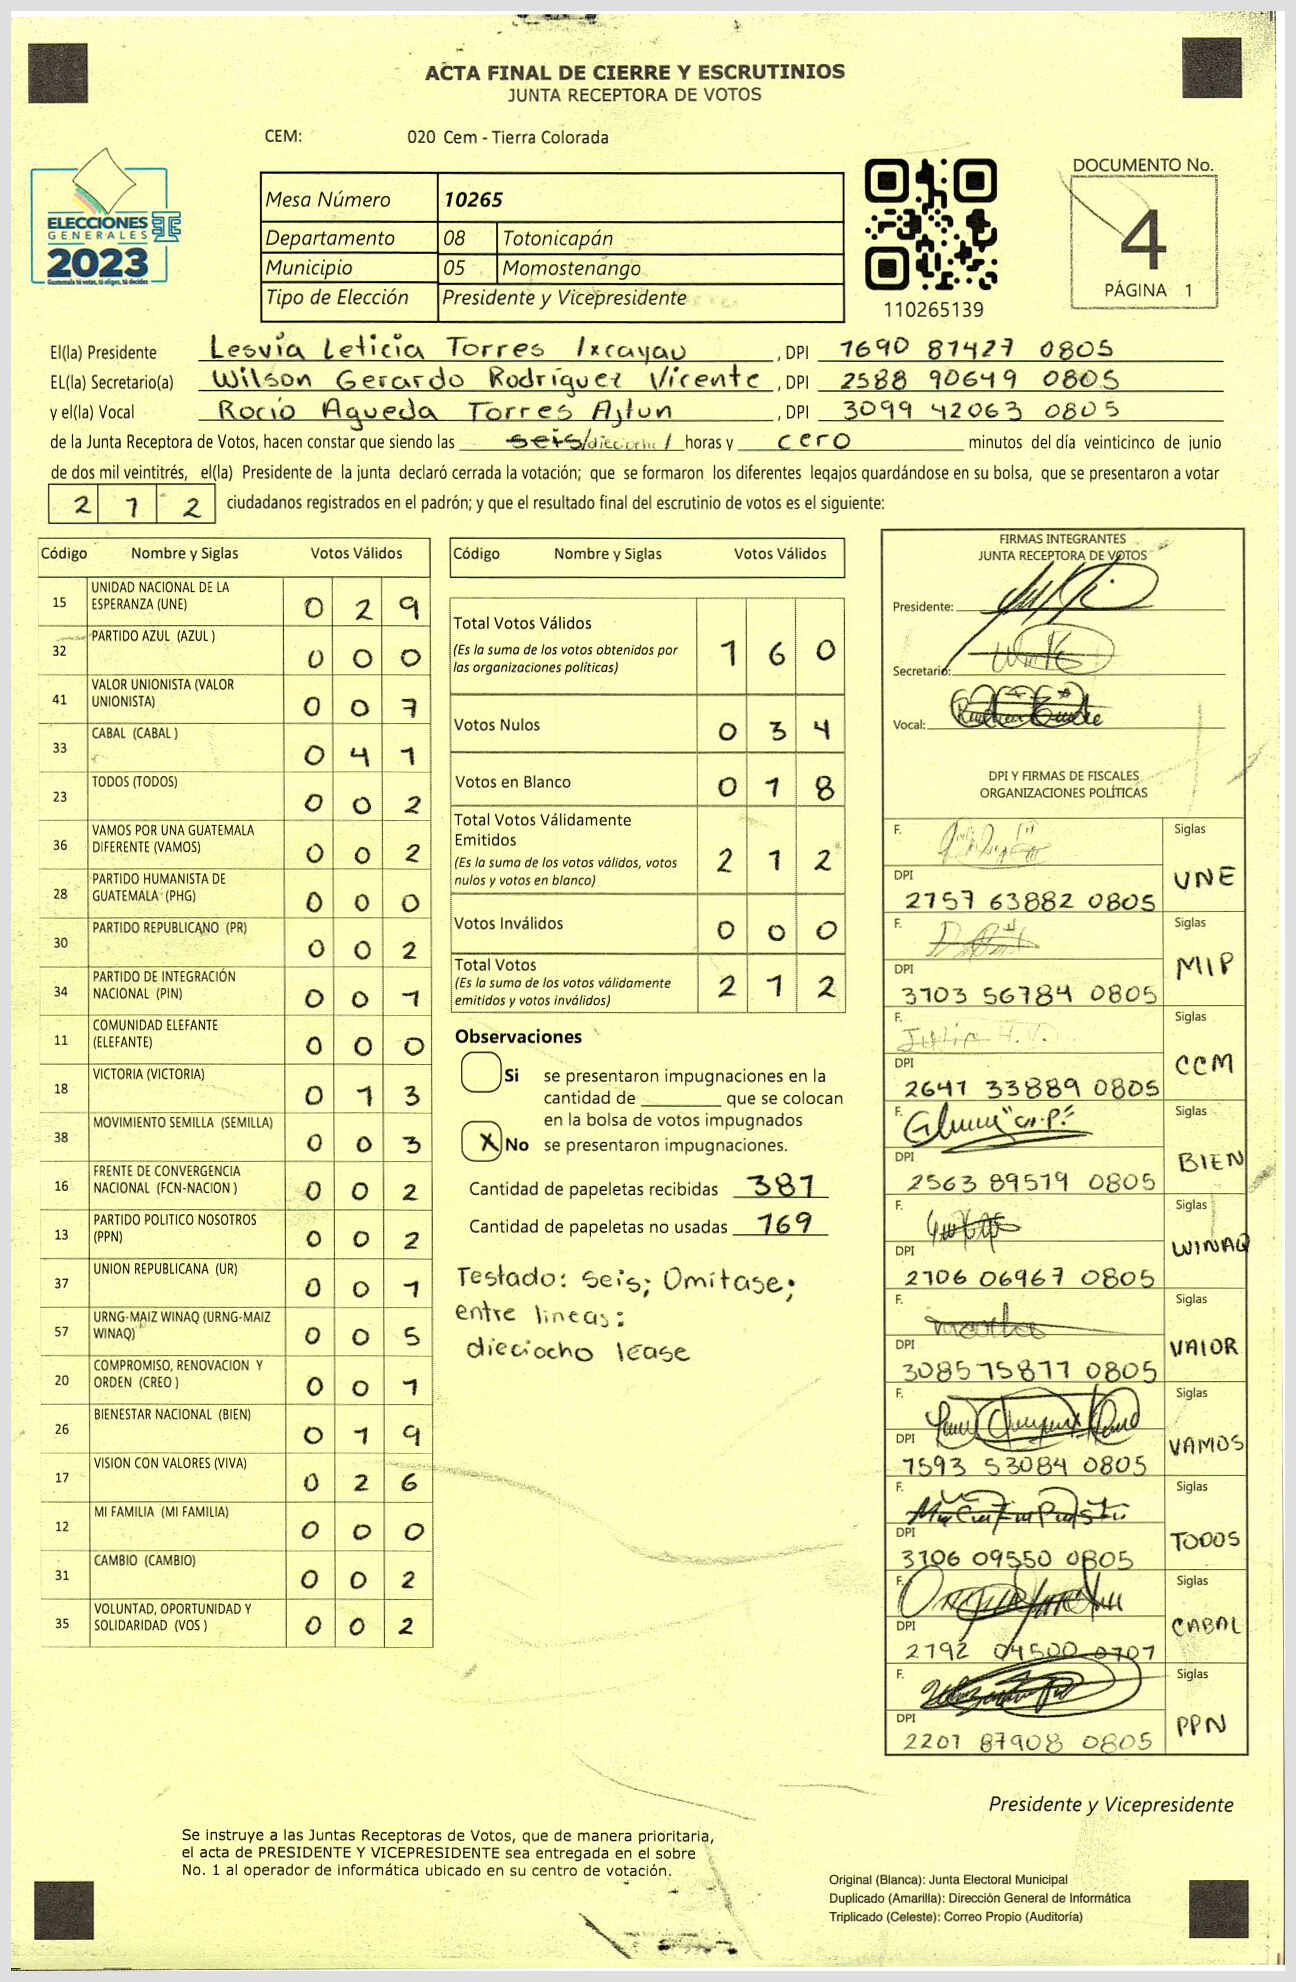 ACTA FINAL DE CIERRE Y ESCRUTINIOS
JUNTA RECEPTORA DE VOTOS
CEM: 020 Cem - Tierra Colorada
ELECCIONES
GENERALES
2023
Guatemala tú votas, tú eliges, tú decides
Mesa Número 10265
Departamento 08 Totonicapán
Municipio 05 Momostenango
Tipo de Elección Presidente y Vicepresidente
110265139
DOCUMENTO No.
4
PÁGINA 1
El(la) Presidente Lesvia Leticia Torres Ixcayau, DPI 1690 81427 0805
EL(la) Secretario(a) Wilson Gerardo Rodríguez Vicente, DPI 2588 90649 0805
y el(la) Vocal Rocío Agueda Torres Ajtun, DPI 3099 42063 0805
de la Junta Receptora de Votos, hacen constar que siendo las seis/dieciocho/ horas y cero minutos del día veinticinco de junio
de dos mil veintitrés, el(la) Presidente de la junta declaró cerrada la votación; que se formaron los diferentes legajos quardándose en su bolsa, que se presentaron a votar
2 1 2 ciudadanos registrados en el padrón; y que el resultado final del escrutinio de votos es el siguiente:
Código Nombre y Siglas Votos Válidos
15 UNIDAD NACIONAL DE LA ESPERANZA (UNE) 0 2 9
32 PARTIDO AZUL (AZUL ) 0 0 0
41 VALOR UNIONISTA (VALOR UNIONISTA) 0 0 7
33 CABAL (CABAL ) 0 4 1
23 TODOS (TODOS) 0 0 2
36 VAMOS POR UNA GUATEMALA DIFERENTE (VAMOS) 0 0 2
28 PARTIDO HUMANISTA DE GUATEMALA (PHG) 0 0 0
30 PARTIDO REPUBLICANO (PR) 0 0 2
34 PARTIDO DE INTEGRACIÓN NACIONAL (PIN) 0 0 1
11 COMUNIDAD ELEFANTE (ELEFANTE) 0 0 0
18 VICTORIA (VICTORIA) 0 1 3
38 MOVIMIENTO SEMILLA (SEMILLA) 0 0 3
16 FRENTE DE CONVERGENCIA NACIONAL (FCN-NACION ) 0 0 2
13 PARTIDO POLITICO NOSOTROS (PPN) 0 0 2
37 UNION REPUBLICANA (UR) 0 0 1
57 URNG-MAIZ WINAQ (URNG-MAIZ WINAQ) 0 0 5
20 COMPROMISO, RENOVACION Y ORDEN (CREO ) 0 0 1
26 BIENESTAR NACIONAL (BIEN) 0 1 9
17 VISION CON VALORES (VIVA) 0 2 6
12 MI FAMILIA (MI FAMILIA) 0 0 0
31 CAMBIO (CAMBIO) 0 0 2
35 VOLUNTAD, OPORTUNIDAD Y SOLIDARIDAD (VOS ) 0 0 2
Código Nombre y Siglas Votos Válidos
Total Votos Válidos 1 6 0
(Es la suma de los votos obtenidos por
las organizaciones políticas)
Votos Nulos 0 3 4
Votos en Blanco 0 1 8
Total Votos Válidamente
Emitidos 2 1 2
(Es la suma de los votos válidos, votos
nulos y votos en blanco)
Votos Inválidos 0 0 0
Total Votos 2 1 2
(Es la suma de los votos válidamente
emitidos y votos inválidos)
Observaciones
Si se presentaron impugnaciones en la
cantidad de ________ que se colocan
en la bolsa de votos impugnados
X No se presentaron impugnaciones.
Cantidad de papeletas recibidas 381
Cantidad de papeletas no usadas 169
Testado: seis; Omítase;
entre lineas:
dieciocho lease
FIRMAS INTEGRANTES
JUNTA RECEPTORA DE VOTOS
Presidente:
Secretario:
Vocal:
DPI Y FIRMAS DE FISCALES
ORGANIZACIONES POLÍTICAS
F. Siglas
DPI 2757 63882 0805 UNE
F. Siglas
DPI 3103 56784 0805 MIP
F. Siglas
DPI 2641 33889 0805 CCM
F. Siglas
DPI 2563 89519 0805 BIEN
F. Siglas
DPI 2106 06967 0805 WINAQ
F. Siglas
DPI 3085 75877 0805 VALOR
F. Siglas
DPI 1593 53084 0805 VAMOS
F. Siglas
DPI 3106 09550 0805 TODOS
F. Siglas
DPI 2192 04500 0707 CABAL
F. Siglas
DPI 2201 87908 0805 PPN
Presidente y Vicepresidente
Se instruye a las Juntas Receptoras de Votos, que de manera prioritaria,
el acta de PRESIDENTE Y VICEPRESIDENTE sea entregada en el sobre
No. 1 al operador de informática ubicado en su centro de votación.
Original (Blanca): Junta Electoral Municipal
Duplicado (Amarilla): Dirección General de Informática
Triplicado (Celeste): Correo Propio (Auditoría)